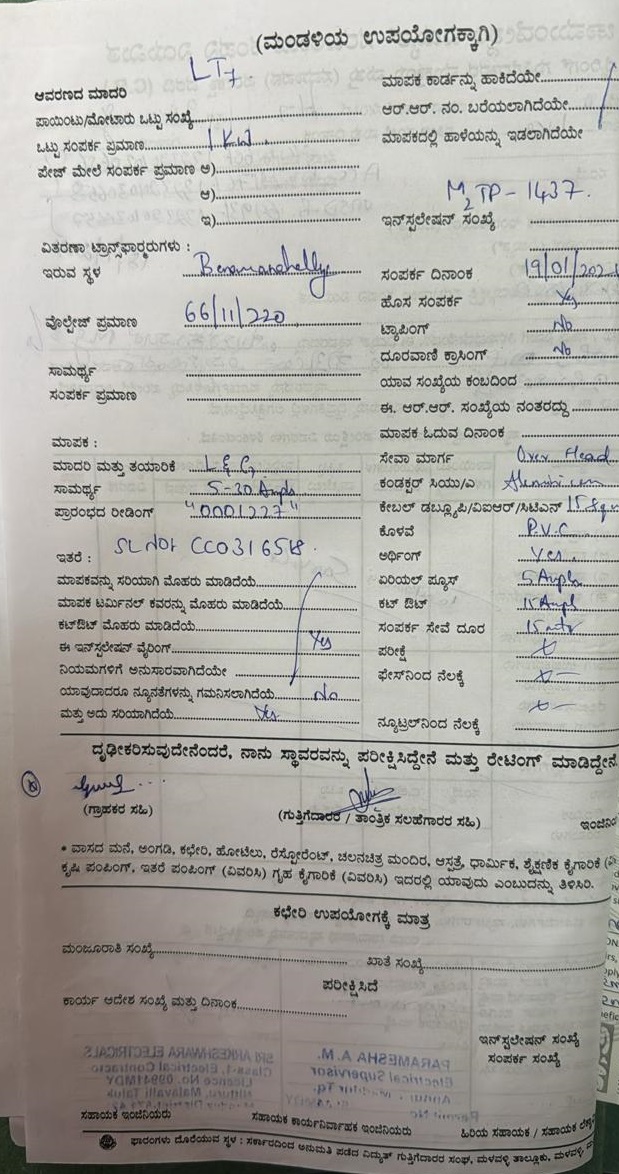 (ಮಂಡಳಿಯ ಉಪಯೋಗಕ್ಕಾಗಿ)
LT7
ಆವರಣದ ಮಾದರಿ
ಮಾಪಕ ಕಾರ್ಡನ್ನು ಹಾಕಿದೆಯೇ
ಪಾಯಿಂಟು/ಮೋಟಾರು ಒಟ್ಟು ಸಂಖ್ಯೆ
ಆರ್.ಆರ್. ನಂ. ಬರೆಯಲಾಗಿದೆಯೇ
ಒಟ್ಟು ಸಂಪರ್ಕ ಪ್ರಮಾಣ 1 KW
ಮಾಪಕದಲ್ಲಿ ಹಾಳೆಯನ್ನು ಇಡಲಾಗಿದೆಯೇ
ಪೇಜ್ ಮೇಲೆ ಸಂಪರ್ಕ ಪ್ರಮಾಣ ಅ)
ಆ)
M2TP-1437.
ಇ)
ಇನ್‌ಸ್ಟಲೇಷನ್ ಸಂಖ್ಯೆ
ವಿತರಣಾ ಟ್ರಾನ್ಸ್‌ಫಾರ್ಮರುಗಳು :
ಇರುವ ಸ್ಥಳ
ಸಂಪರ್ಕ ದಿನಾಂಕ 19/01/202
ಹೊಸ ಸಂಪರ್ಕ Yes
ವೊಲ್ಟೇಜ್ ಪ್ರಮಾಣ 66/11/220
ಟ್ಯಾಪಿಂಗ್ No
ದೂರವಾಣಿ ಕ್ರಾಸಿಂಗ್ No
ಸಾಮರ್ಥ್ಯ
ಯಾವ ಸಂಖ್ಯೆಯ ಕಂಬದಿಂದ
ಸಂಪರ್ಕ ಪ್ರಮಾಣ
ಈ. ಆರ್.ಆರ್. ಸಂಖ್ಯೆಯ ನಂತರದ್ದು
ಮಾಪಕ :
ಮಾಪಕ ಓದುವ ದಿನಾಂಕ
ಮಾದರಿ ಮತ್ತು ತಯಾರಿಕೆ L&G
ಸೇವಾ ಮಾರ್ಗ Over Head
ಸಾಮರ್ಥ್ಯ 5-30 Amps
ಕಂಡಕ್ಟರ್ ಸಿಯು/ಎ
ಪ್ರಾರಂಭದ ರೀಡಿಂಗ್ "0001227"
ಕೇಬಲ್ ಡಬ್ಲ್ಯೂಪಿ/ವಿಐಆರ್/ಸಿಟಿಎಸ್
ಕೊಳವೆ P.V.C
ಇತರೆ : SL NO: CC031658
ಅರ್ಥಿಂಗ್ Yes
ಮಾಪಕವನ್ನು ಸರಿಯಾಗಿ ಮೊಹರು ಮಾಡಿದೆಯೆ
ಏರಿಯಲ್ ಪ್ಯೂಸ್ 5 Amps
ಮಾಪಕ ಟರ್ಮಿನಲ್ ಕವರನ್ನು ಮೊಹರು ಮಾಡಿದೆಯೆ
ಕಟ್ ಔಟ್ 15 Amps
ಕಟ್‌ಔಟ್ ಮೊಹರು ಮಾಡಿದೆಯೆ
ಸಂಪರ್ಕ ಸೇವೆ ದೂರ 15 mtr
ಈ ಇನ್‌ಸ್ಟಲೇಷನ್ ವೈರಿಂಗ್ Yes
ಪರೀಕ್ಷೆ
ನಿಯಮಗಳಿಗೆ ಅನುಸಾರವಾಗಿದೆಯೇ
ಫೇಸ್‌ನಿಂದ ನೆಲಕ್ಕೆ
ಯಾವುದಾದರೂ ನ್ಯೂನತೆಗಳನ್ನು ಗಮನಿಸಲಾಗಿದೆಯೆ No
ಮತ್ತು ಅದು ಸರಿಯಾಗಿದೆಯೆ Yes
ನ್ಯೂಟ್ರಲ್‌ನಿಂದ ನೆಲಕ್ಕೆ
ದೃಢೀಕರಿಸುವುದೇನೆಂದರೆ, ನಾನು ಸ್ಥಾವರವನ್ನು ಪರೀಕ್ಷಿಸಿದ್ದೇನೆ ಮತ್ತು ರೇಟಿಂಗ್ ಮಾಡಿದ್ದೇನೆ
(ಗ್ರಾಹಕರ ಸಹಿ)
(ಗುತ್ತಿಗೆದಾರರ / ತಾಂತ್ರಿಕ ಸಲಹೆಗಾರರ ಸಹಿ)
* ವಾಸದ ಮನೆ, ಅಂಗಡಿ, ಕಛೇರಿ, ಹೋಟೆಲು, ರೆಸ್ಟೋರೆಂಟ್, ಚಲನಚಿತ್ರ ಮಂದಿರ, ಆಸ್ಪತ್ರೆ, ಧಾರ್ಮಿಕ, ಶೈಕ್ಷಣಿಕ ಕೈಗಾರಿಕೆ
ಕೃಷಿ ಪಂಪಿಂಗ್, ಇತರೆ ಪಂಪಿಂಗ್ (ವಿವರಿಸಿ) ಗೃಹ ಕೈಗಾರಿಕೆ (ವಿವರಿಸಿ) ಇದರಲ್ಲಿ ಯಾವುದು ಎಂಬುದನ್ನು ತಿಳಿಸಿರಿ.
ಕಛೇರಿ ಉಪಯೋಗಕ್ಕೆ ಮಾತ್ರ
ಮಂಜೂರಾತಿ ಸಂಖ್ಯೆ
ಖಾತೆ ಸಂಖ್ಯೆ
ಪರೀಕ್ಷಿಸಿದೆ
ಕಾರ್ಯ ಆದೇಶ ಸಂಖ್ಯೆ ಮತ್ತು ದಿನಾಂಕ
ಇನ್‌ಸ್ಟಲೇಷನ್ ಸಂಖ್ಯೆ
ಸಂಪರ್ಕ ಸಂಖ್ಯೆ
ಸಹಾಯಕ ಇಂಜಿನಿಯರು
ಸಹಾಯಕ ಕಾರ್ಯನಿರ್ವಾಹಕ ಇಂಜಿನಿಯರು
ಹಿರಿಯ ಸಹಾಯಕ / ಸಹಾಯಕ
ಫಾರಂಗಳು ದೊರೆಯುವ ಸ್ಥಳ : ಸರ್ಕಾರದಿಂದ ಅನುಮತಿ ಪಡೆದ ವಿದ್ಯುತ್ ಗುತ್ತಿಗೆದಾರರ ಸಂಘ, ಮಳವಳ್ಳಿ ತಾಲ್ಲೂಕು, ಮಳವಳ್ಳಿ,